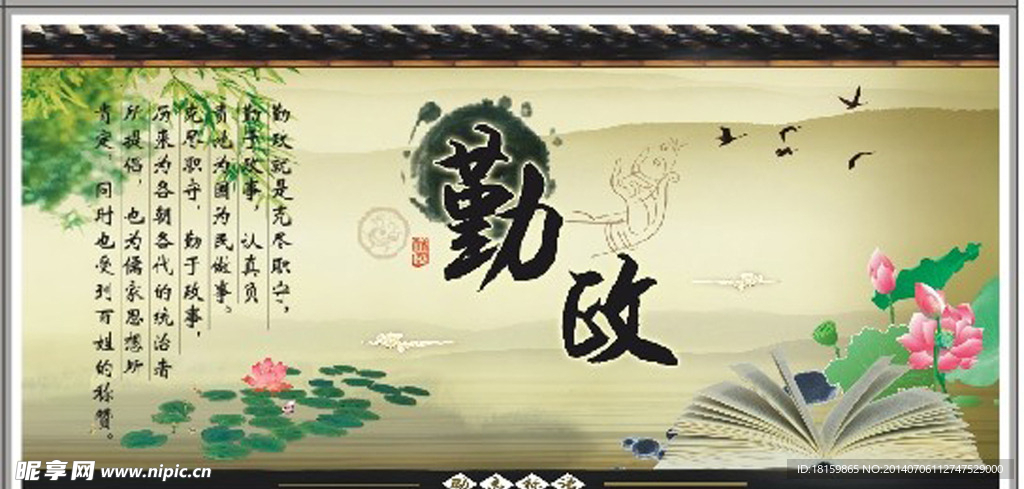 勤政就是克尽职守，
勤于政事，认真负
责地为国为民做事。
克尽职守，勤于政事，
历来为各朝各代的统治者
所提倡，也为儒家思想所
肯定，同时也受到百姓的称赞。
勤
政
昵享网 www.nipic.cn
ID:18159865 NO:20140706112747529000